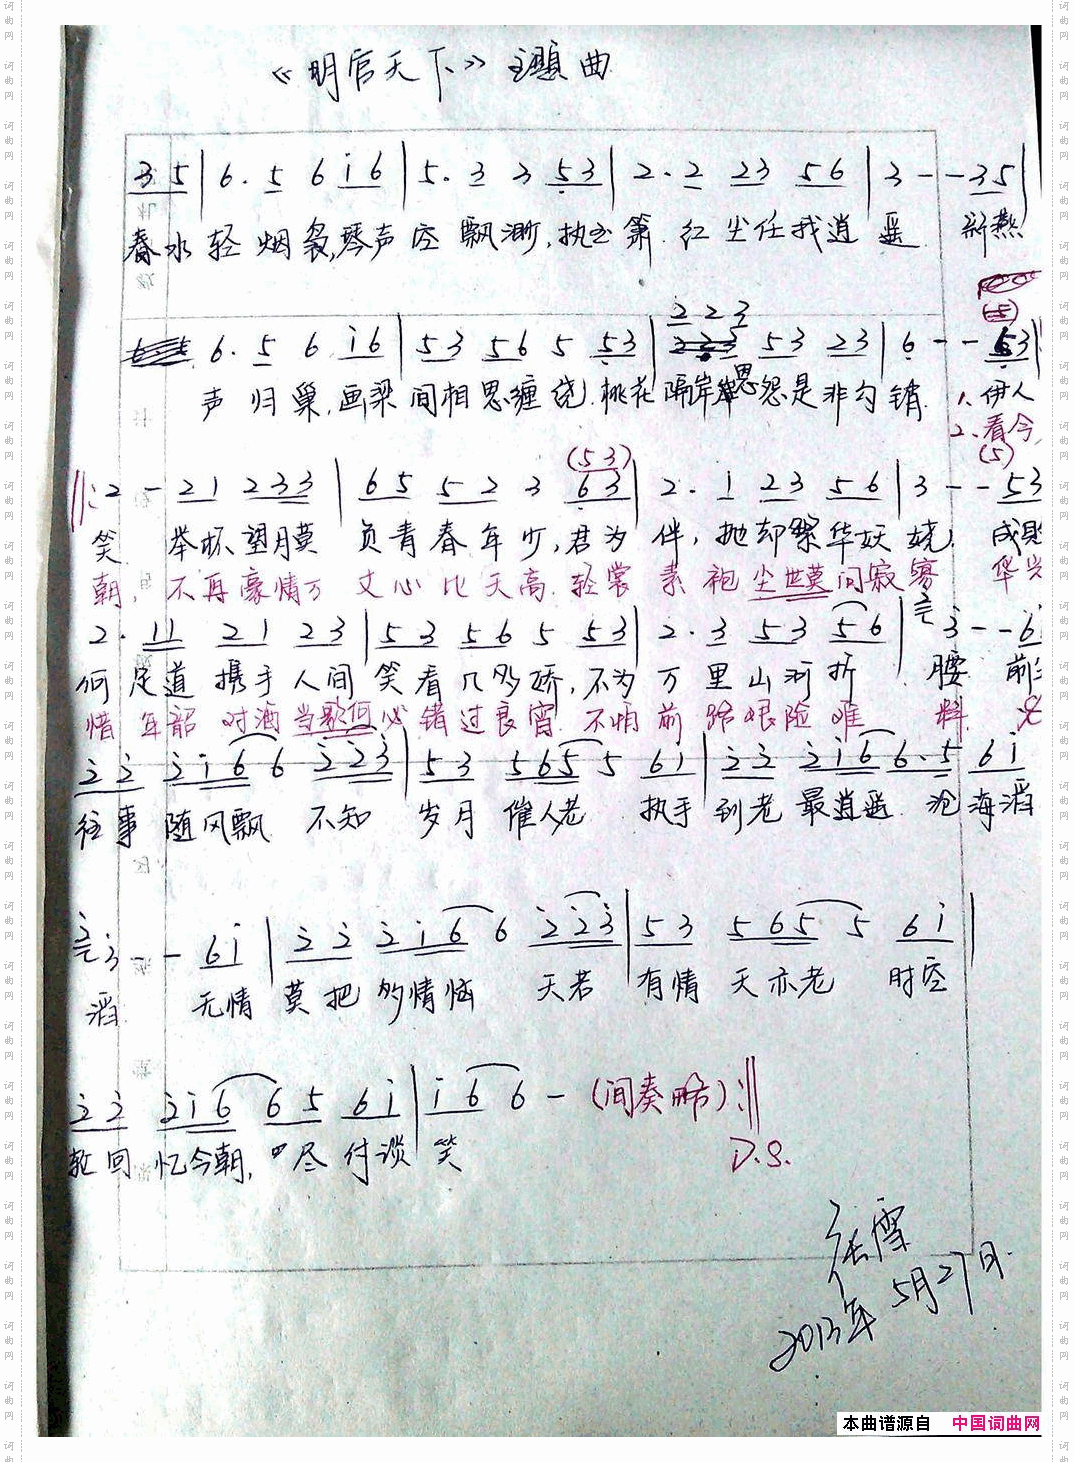 《明官天下》主题曲
3 5 | 6. 5 6 i 6 | 5. 3 3 5 3 | 2. 2 2 3 5 6 | 3 - - 3 5 |
春水轻烟袅,琴声空飘渺,执玉箫 红尘任我逍遥 新燕
2 2 3
(5)
6. 5 6 i 6 | 5 3 5 6 5 5 3 | 5 3 2 3 | 6 - - 3 |
声归巢,画梁间相思缠绕.桃花隔岸 恩怨是非勾销. 1.伊人
2.看今
(5 3) (5)
2 - 2 1 2 3 3 | 6 5 5 2 3 6 3 | 2. 1 2 3 5 6 | 3 - - 5 3
笑 举杯望月莫 负青春年少,君为伴,抛却繁华妖娆, 成败
朝, 不再豪情万 丈心比天高.轻裳素袍 尘世莫问寂寥 华兴
2. 1 1 2 1 2 3 | 5 3 5 6 5 5 3 | 2. 3 5 3 5 6 | 3 - - 6
何足道 携手人间 笑看几多娇,不为万里山河折 腰 前尘
惜年韶 对酒当歌何必错过良宵.不怕前路艰险难 料
2 2 2 i 6 6 2 2 3 | 5 3 5 6 5 5 6 i | 2 2 2 i 6 6. 5 6 i
往事 随风飘 不知 岁月 催人老 执手 到老 最逍遥 沧海滔
3 - - 6 i | 2 2 2 i 6 6 2 2 3 | 5 3 5 6 5 5 6 i |
滔 无情 莫把 多情恼 天若 有情 天亦老 时空
2 2 2 i 6 6 5 6 i | i 6 6 - (间奏略) :||
轮回 忆今朝, 尽付谈 笑
D.S.
张雪
2013年5月27日
本曲谱源自 中国词曲网